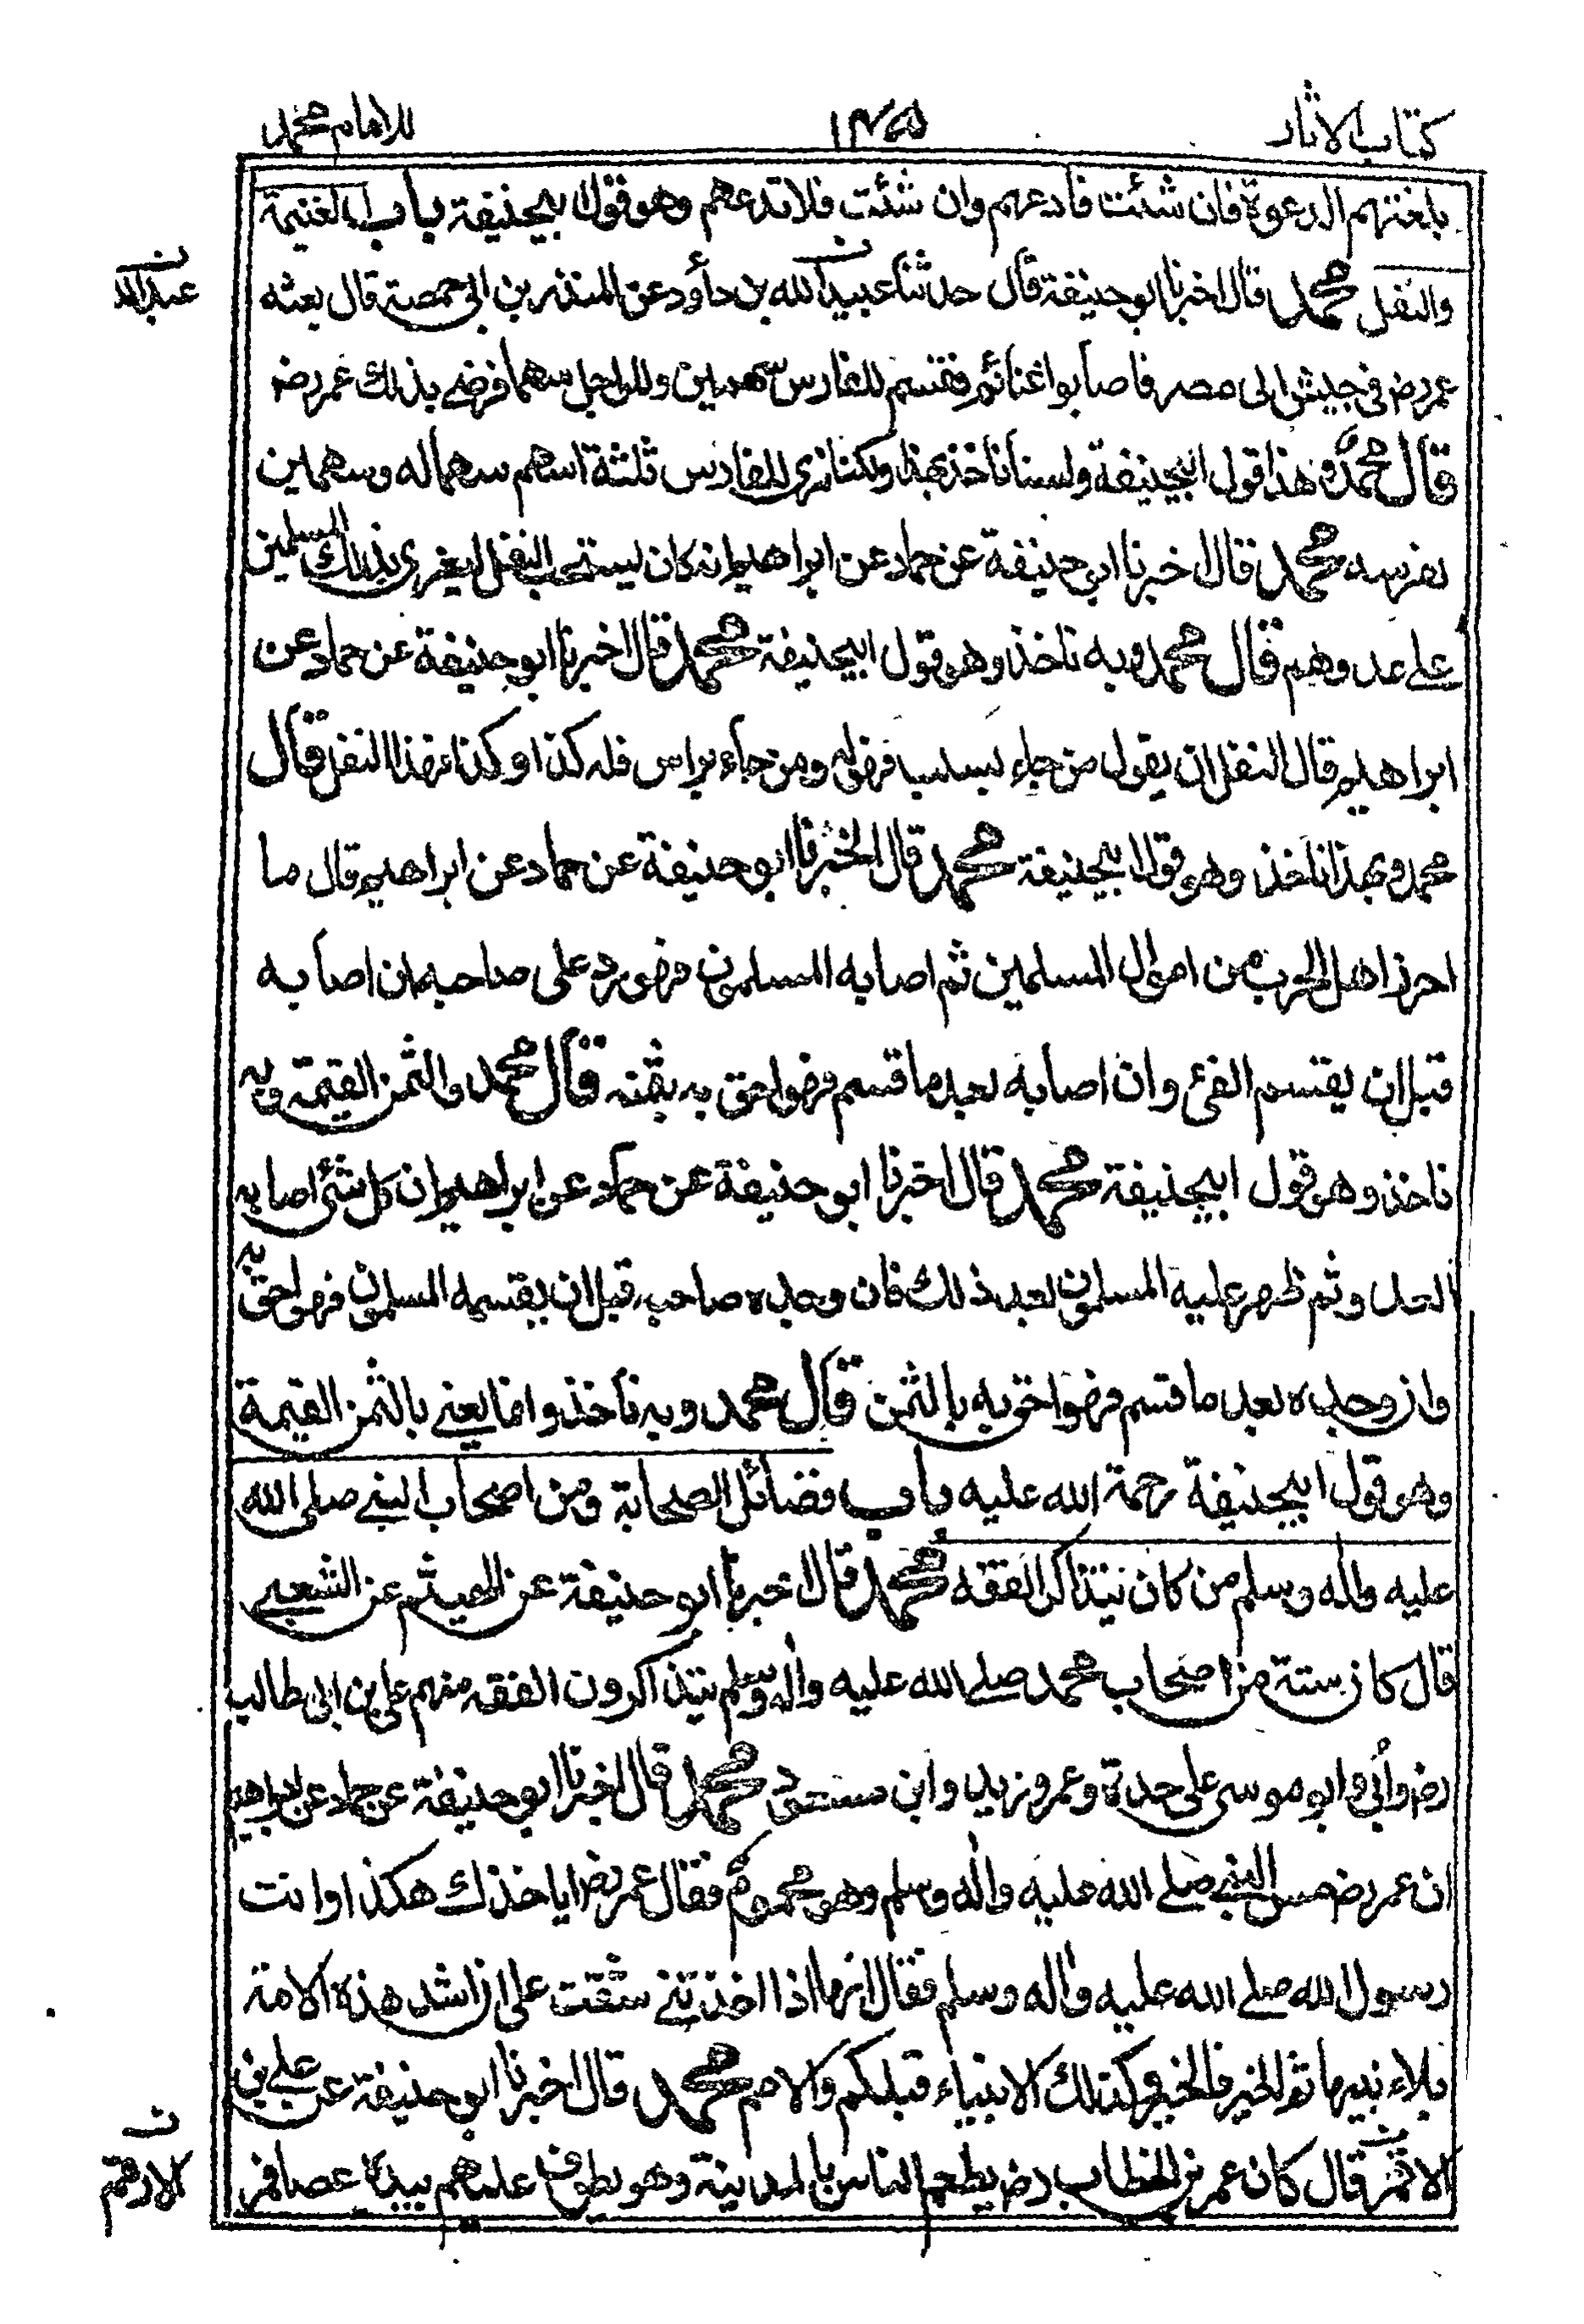 كتاب الاثار ١٤٥ للامام محمد
بلغتهم الدعوة فان شئت فادعهم وان شئت فلا تدعهم وهو قول ابيحنيفة باب الغنيمة
والنفل محمد قال اخبرنا ابو حنيفة قال حدثنا عبيد الله بن داؤد عن المنذر بن ابي حمصة قال بعثه
عبد الله
عمر رض في جيش الى مصر فاصابوا غنائم فقسم للفارس سهمين وللراجل سهما فرضي بذلك عمر رض
قال محمد وهذا قول ابيحنيفة ولسنا ناخذ بهذا ولكنا نرى للفارس ثلثة اسهم سهما له وسهمين
لفرسه محمد قال اخبرنا ابو حنيفة عن حماد عن ابراهيم انه كان يستحب النفل ليغري بذلك المسلمين
على عدوهم قال محمد وبه ناخذ وهو قول ابيحنيفة محمد قال اخبرنا ابو حنيفة عن حماد عن
ابراهيم قال النفل ان يقول من جاء بسلب فهو له ومن جاء براس فله كذا وكذا فهذا النفل قال
محمد وبهذا ناخذ وهو قول ابيحنيفة محمد قال اخبرنا ابو حنيفة عن حماد عن ابراهيم قال ما
احرز اهل الحرب من اموال المسلمين ثم اصابه المسلمون فهو رد على صاحبه ان اصابه
قبل ان يقتسم الفئ وان اصابه بعد ما قسم فهو احق به بثمنه قال محمد والثمن القيمة وبه
ناخذ وهو قول ابيحنيفة محمد قال اخبرنا ابو حنيفة عن حماد عن ابراهيم ان كل شئ اصابه
العدو ثم ظهر عليه المسلمون بعد ذلك فان وجده صاحبه قبل ان يقتسمه المسلمون فهو احق به
وان وجده بعد ما قسم فهو احق به بالثمن قال محمد وبه ناخذ وانما يعني بالثمن القيمة
وهو قول ابيحنيفة رحمة الله عليه باب فضائل الصحابة ومن اصحاب النبي صلى الله
عليه واله وسلم من كان يتذاكر الفقه محمد قال اخبرنا ابو حنيفة عن الهيثم عن الشعبي
قال كان ستة من اصحاب محمد صلى الله عليه واله وسلم يتذاكرون الفقه منهم علي بن ابي طالب
رض وأبي وابو موسى على حدة وعمر وزيد وابن مسعود محمد قال اخبرنا ابو حنيفة عن حماد عن ابراهيم
ان عمر رض مس النبي صلى الله عليه واله وسلم وهو محموم فقال عمر رض اياخذك هكذا وانت
رسول الله صلى الله عليه واله وسلم فقال انها اذا اخذتني شقت على ان اشد هذه الامة
بلاء نبيها ثم الخير فالخير وكذلك الانبياء قبلكم والامم محمد قال اخبرنا ابو حنيفة عن علي بن
الاقمر قال كان عمر بن الخطاب رض يطعم الناس بالمدينة وهو يطوف عليهم بيده عصا فمر
الارقم